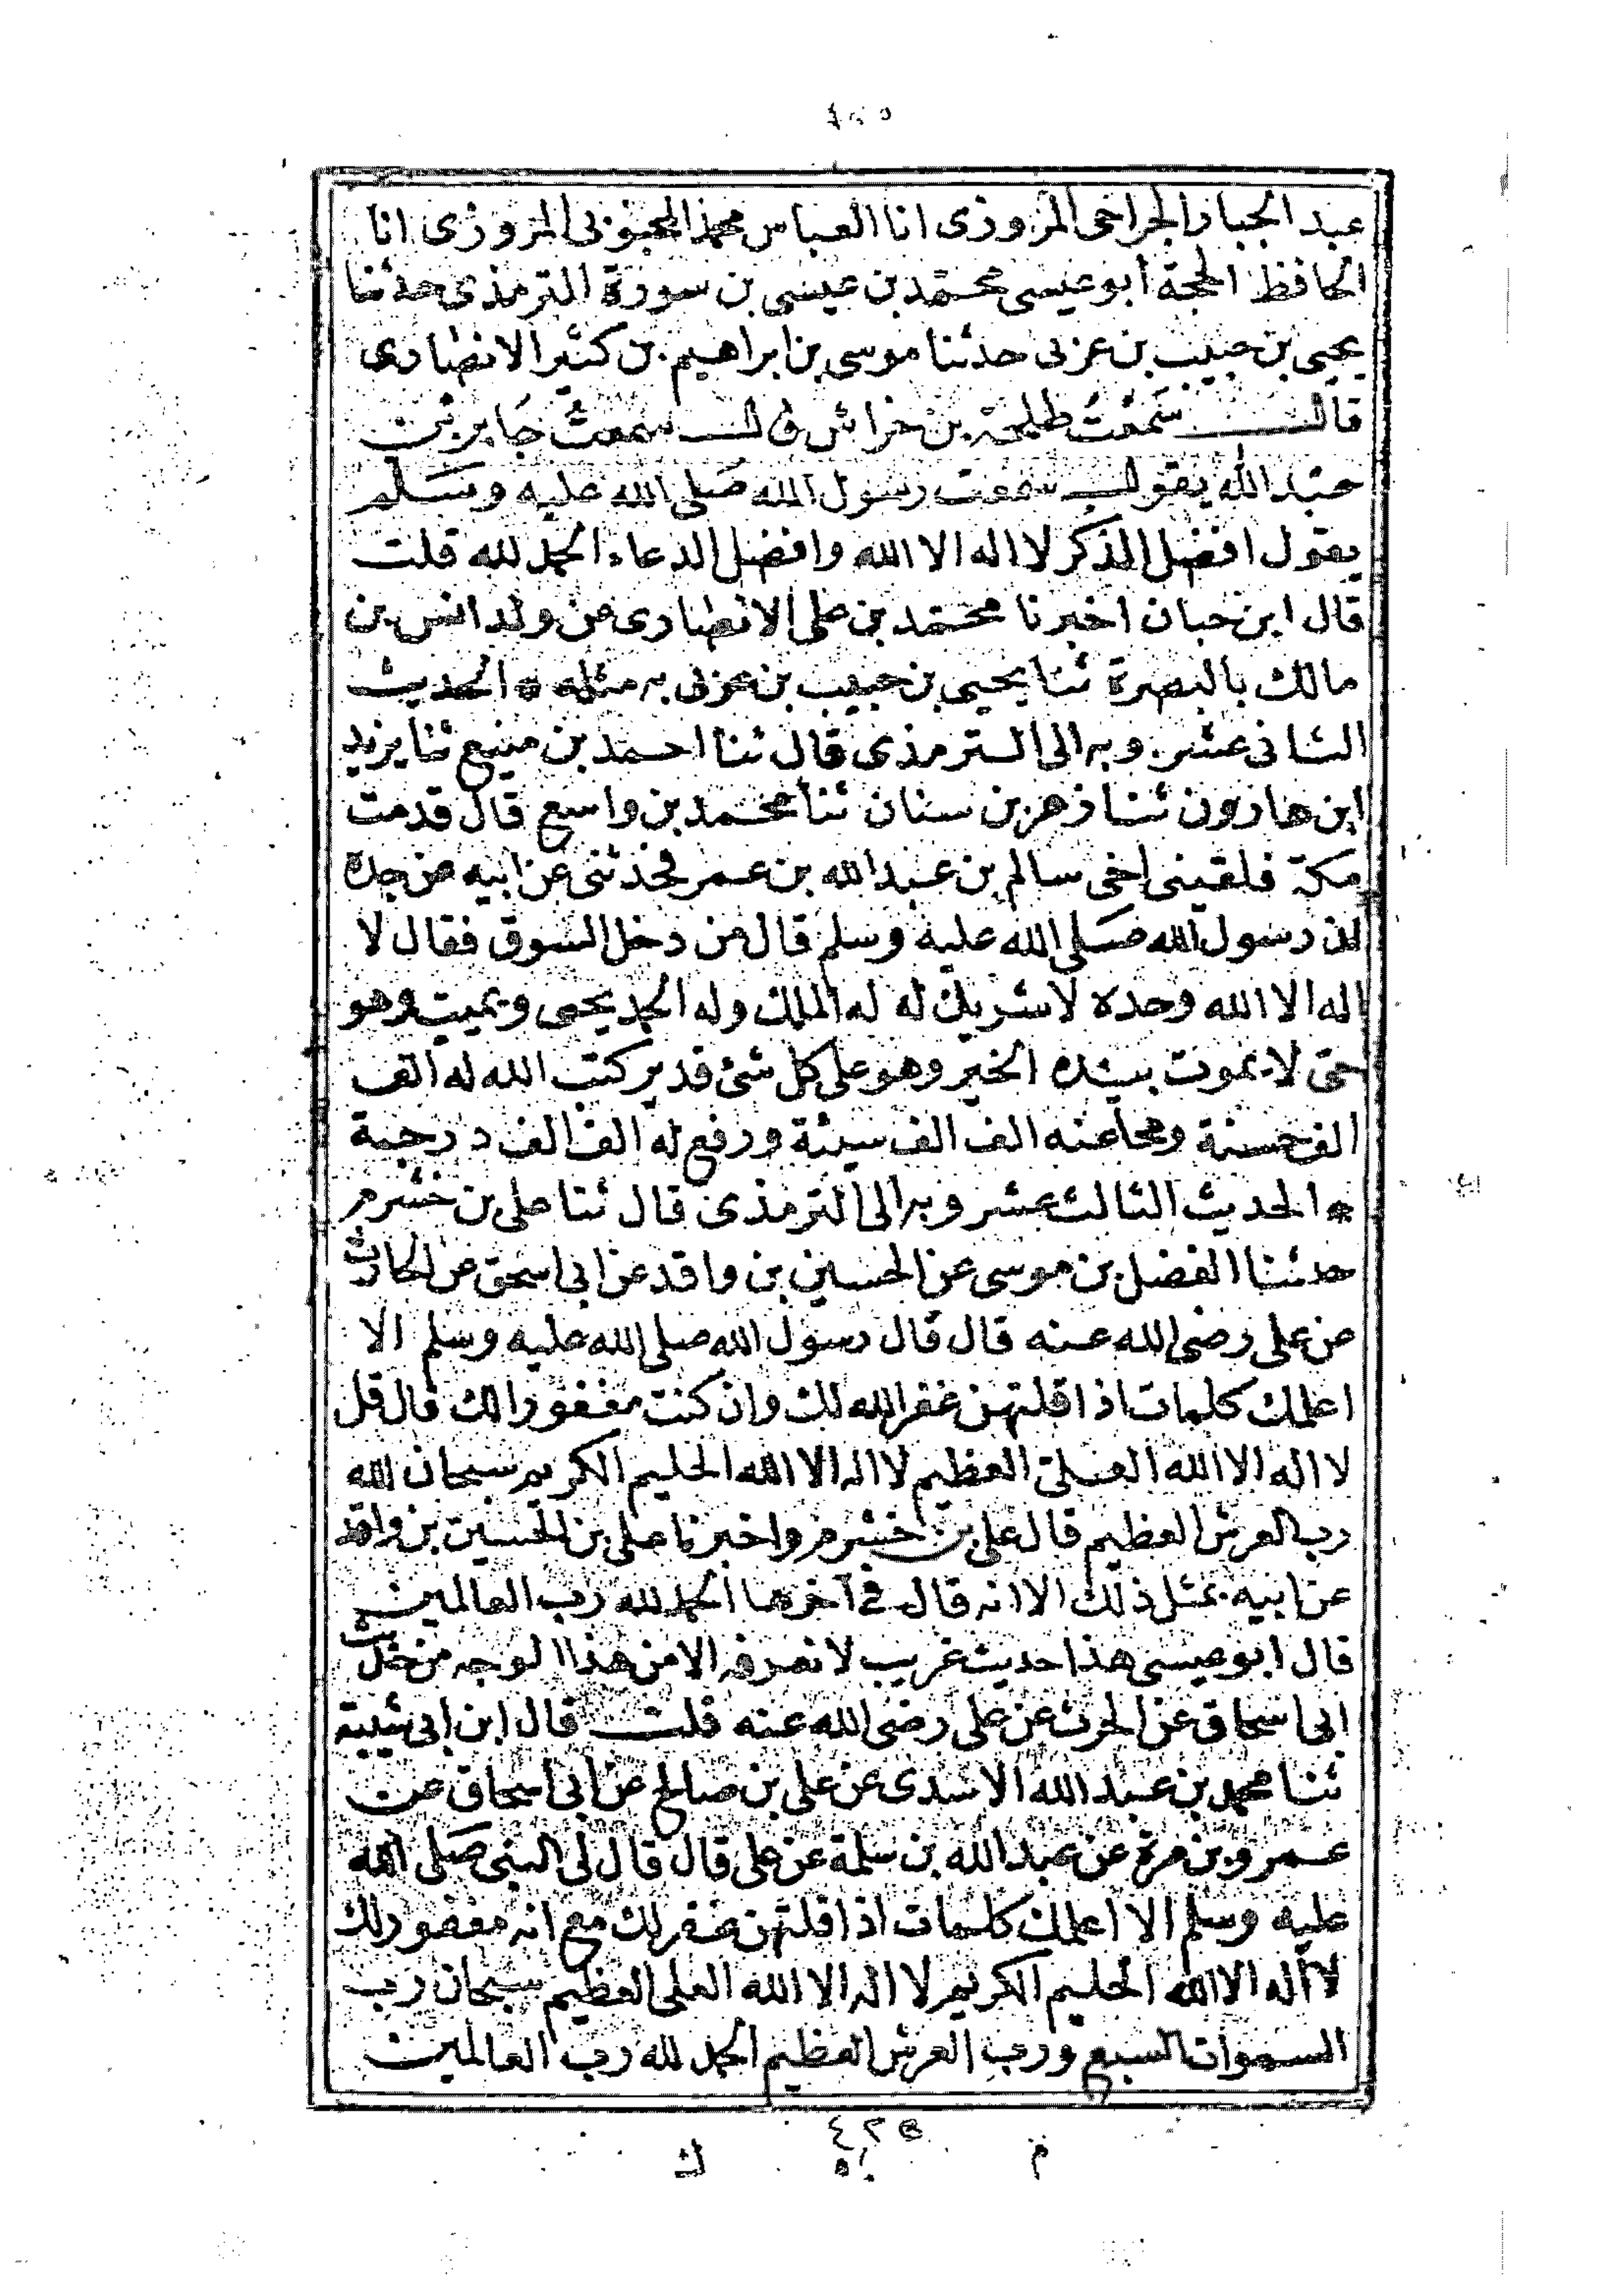 عبد الجبار الجراحى المروزى انا العباس محمد المحبوبى المروزى انا
الحافظ الحجة ابو عيسى محمد بن عيسى بن سورة الترمذى حدثنا
يحيى بن حبيب بن عربى حدثنا موسى بن ابراهيم بن كثير الانصارى
قال سمعت طلحة بن خراش قال سمعت جابر بن
عبد الله يقول سمعت رسول الله صلى الله عليه وسلم
يقول افضل الذكر لا اله الا الله وافضل الدعاء الحمد لله قلت
قال ابن حبان اخبرنا محمد بن على الانصارى من ولد انس بن
مالك بالبصرة ثنا يحيى بن حبيب بن عربى به مثله * الحديث
الثانى عشر وبه الى الترمذى قال ثنا احمد بن منيع ثنا يزيد
ابن هارون ثنا زهر بن سنان ثنا محمد بن واسع قال قدمت
مكة فلقينى اخى سالم بن عبد الله بن عمر فحدثنى عن ابيه عن جده
ان رسول الله صلى الله عليه وسلم قال من دخل السوق فقال لا
اله الا الله وحده لا شريك له له الملك وله الحمد يحيى ويميت وهو
حى لا يموت بيده الخير وهو على كل شئ قدير كتب الله له الف
الف حسنة ومحا عنه الف الف سيئة ورفع له الف الف درجة
* الحديث الثالث عشر وبه الى الترمذى قال ثنا على بن خشرم
حدثنا الفضل بن موسى عن الحسين بن واقد عن ابى اسحق عن الحارث
عن على رضى الله عنه قال قال رسول الله صلى الله عليه وسلم الا
اعلمك كلمات اذا قلتهن غفر الله لك وان كنت مغفورا لك قال قل
لا اله الا الله العلى العظيم لا اله الا الله الحليم الكريم سبحان الله
رب العرش العظيم قال على بن خشرم واخبرنا على بن الحسين بن واقد
عن ابيه بمثل ذلك الا انه قال فى آخرها الحمد لله رب العالمين
قال ابو عيسى هذا حديث غريب لا نعرفه الا من هذا الوجه من حديث
ابى اسحاق عن الحرث عن على رضى الله عنه قلت قال ابن ابى شيبة
ثنا محمد بن عبد الله الاسدى عن على بن صالح عن ابى اسحاق عن
عمرو بن مرة عن عبد الله بن سلمة عن على قال قال لى النبى صلى الله
عليه وسلم الا اعلمك كلمات اذا قلتهن غفر لك مع انه مغفور لك
لا اله الا الله الحليم الكريم لا اله الا الله العلى العظيم سبحان رب
السموات السبع ورب العرش العظيم الحمد لله رب العالمين
م ك